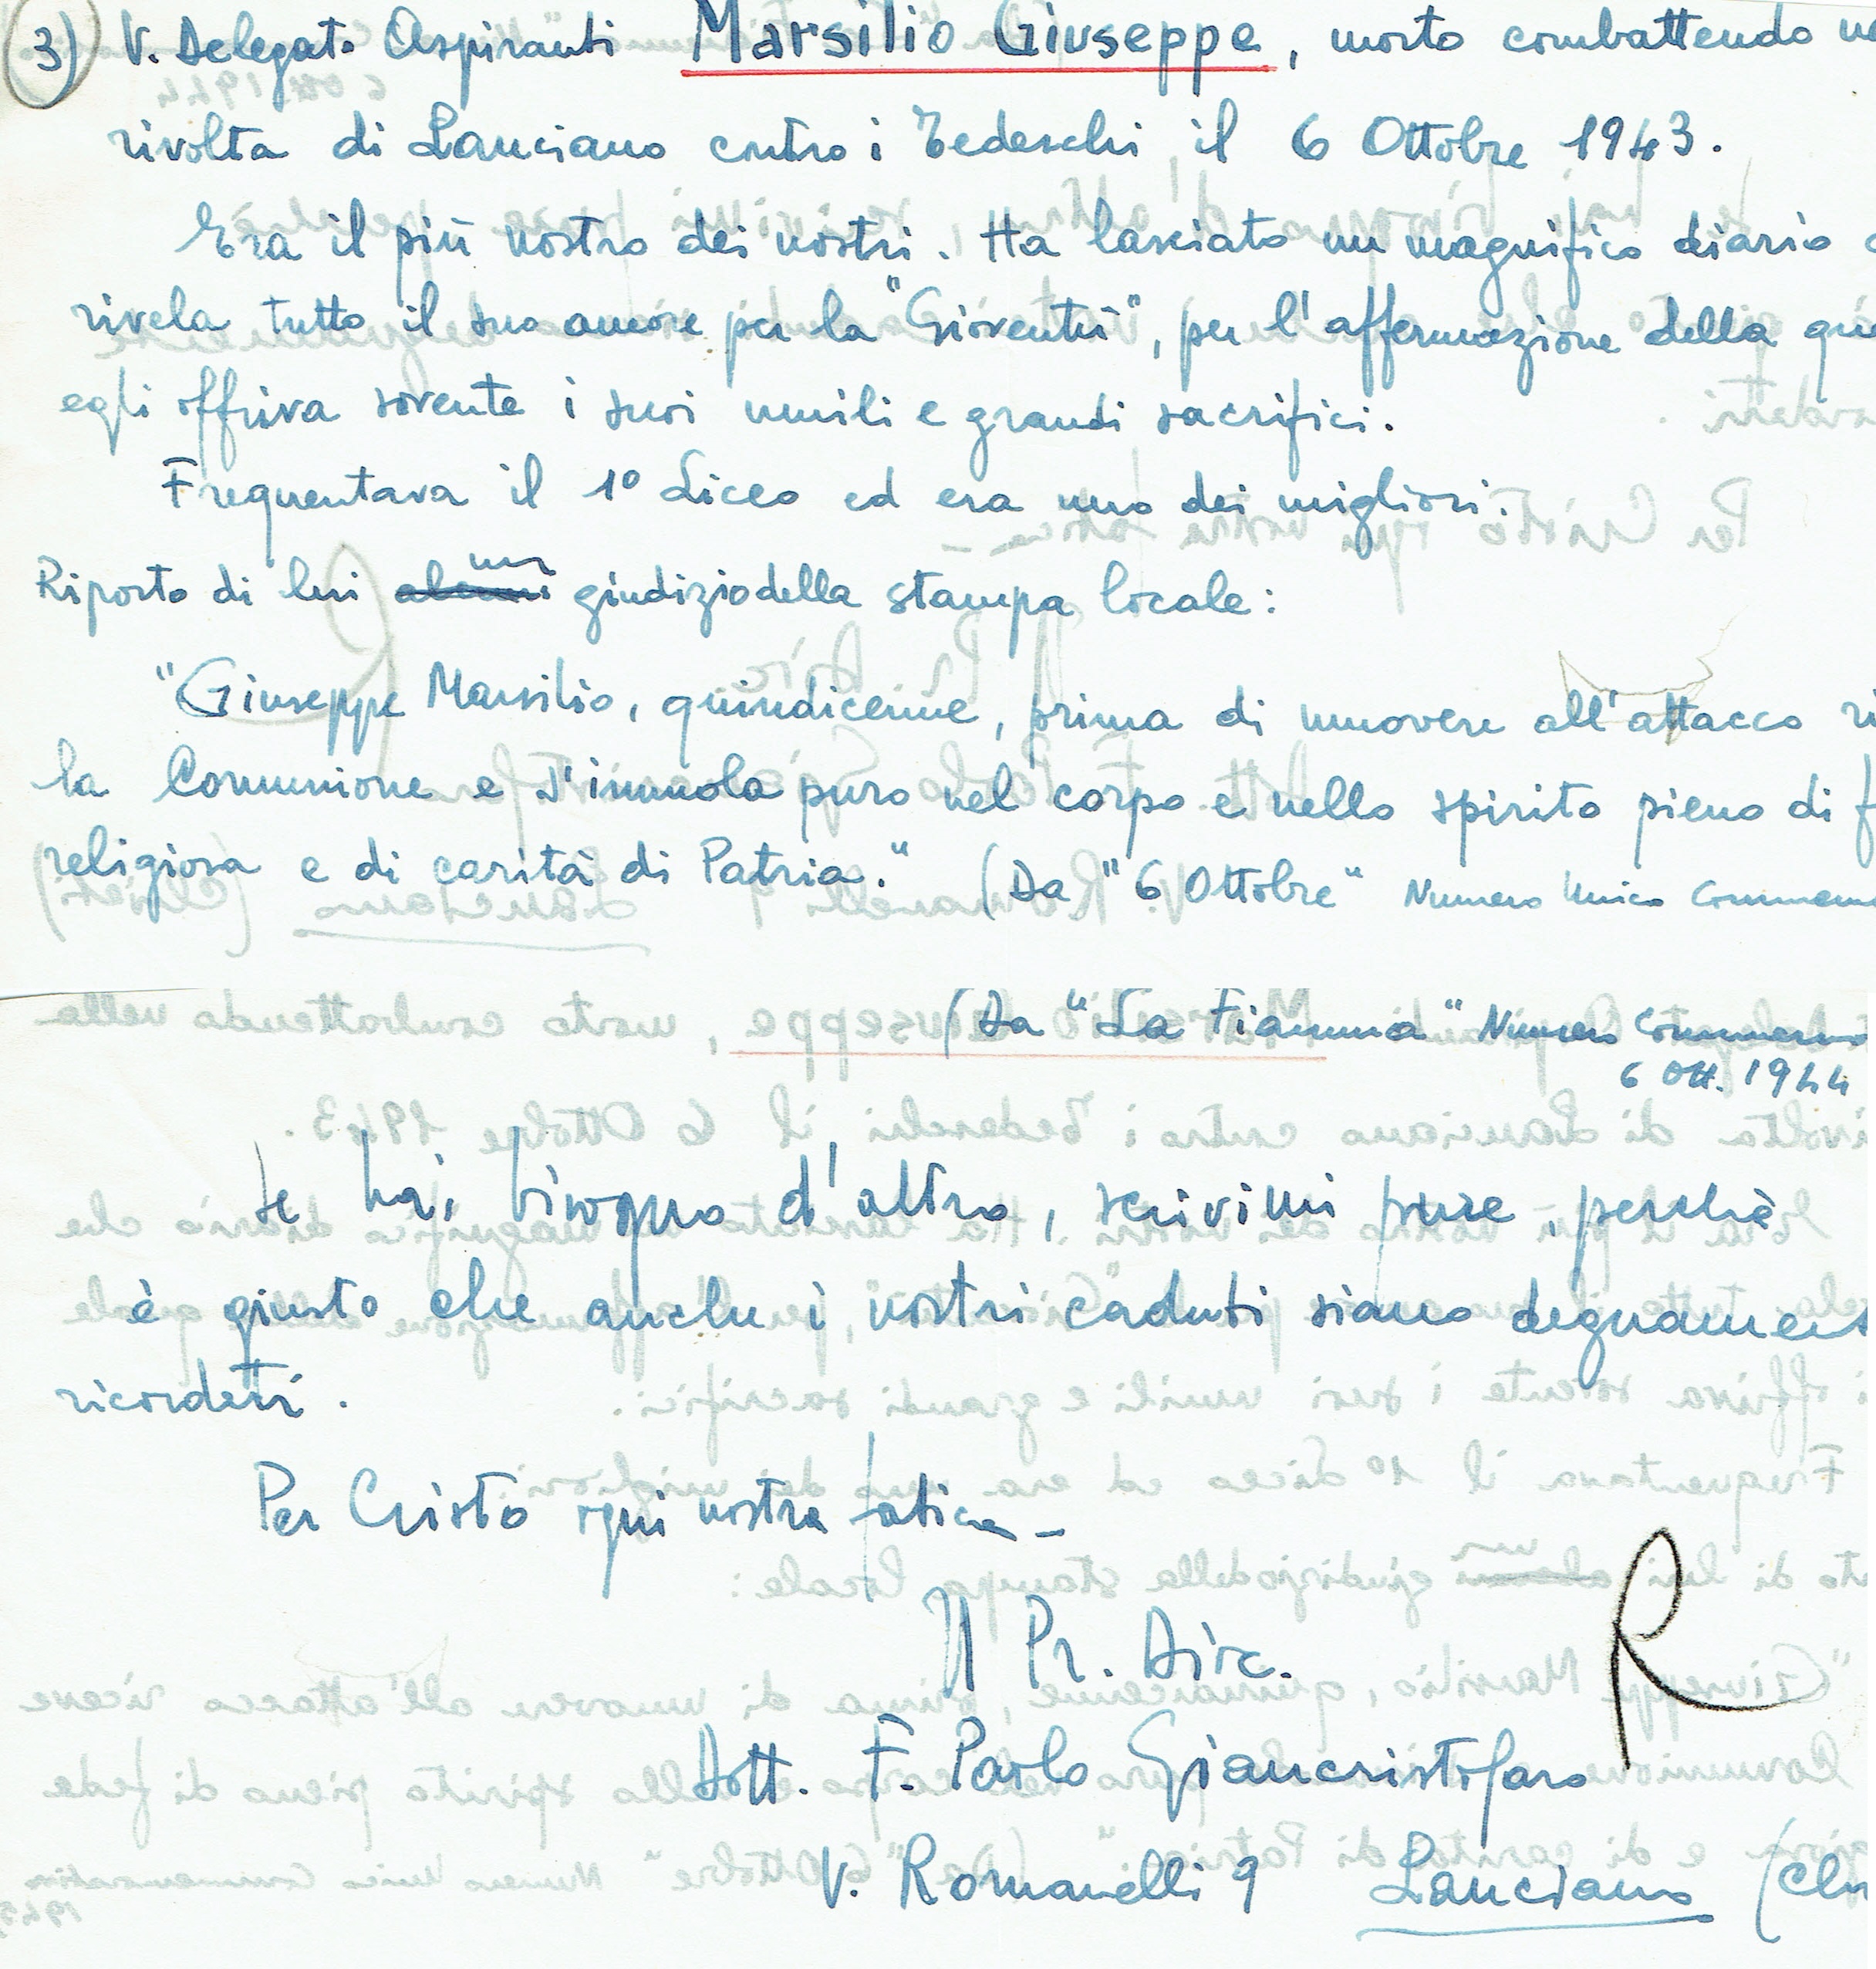 3) V. Delegato Aspiranti Marsilio Giuseppe, morto combattendo
rivolta di Lanciano contro i Tedeschi il 6 Ottobre 1943.
Era il più nostro dei nostri. Ha lasciato un magnifico diario
rivela tutto il suo amore per la "Gioventù", per l'affermazione della
egli offriva sovente i suoi umili e grandi sacrifici.
Frequentava il 1º Liceo ed era uno dei migliori.
un
Riporto di lui alcuni giudizio della stampa locale:
"Giuseppe Marsilio, quindicenne, prima di muovere all'attacco
la Comunione e s'immola puro nel corpo e nello spirito pieno di
religiosa e di carità di Patria." (Da "6 Ottobre" Numero Unico
(Da "La Fiamma" Numero
6 Ott. 1944
Se hai bisogno d'altro, scrivimi pure, perchè
è giusto che anche i nostri caduti siano degnamen
ricordati.
Per Cristo ogni nostra fatica -
Il Pr. Dioc.
R
Dott. F. Paolo Giancristofaro
V. Romanelli 9 Lanciano (Ch